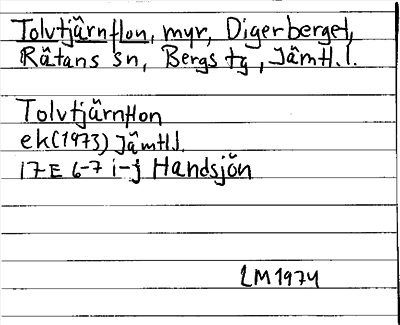 Tolvtjärnflon, myr, Digerberget,
Rätans sn, Bergs tg, Jämtl.l.
Tolvtjärnflon
ek(1973) Jämtl.l.
17E 6-7 i-j Handsjön
LM1974